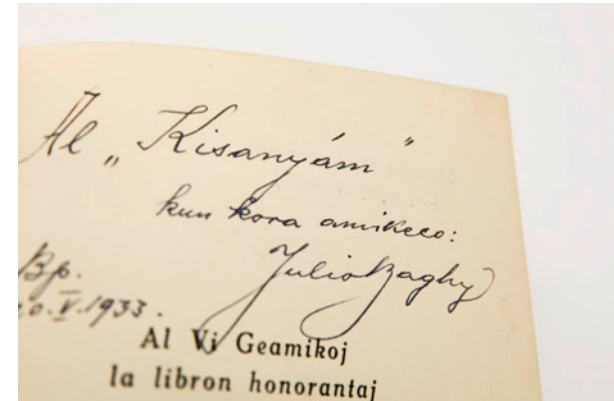 Al „Kisanyám”
kun kora amikeco:
Julio Baghy
Bp.
0. V. 1933.
Al Vi Geamikoj
la libron honorantaj